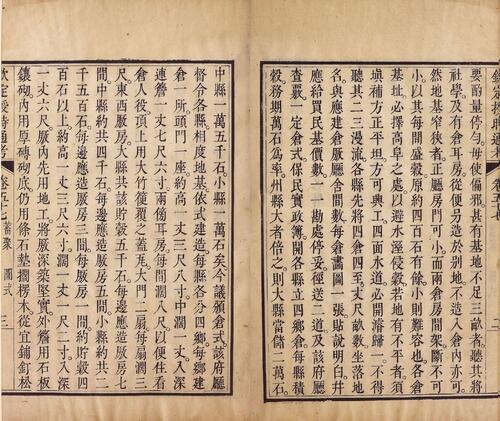 欽定授時通考 卷五十七 二
要酌量停勻每使偏邪甚有基地不足三畝者聽其將
社學及有倉耳房從便另造於別地不造入倉內亦可。
然地基窄狹者正廳房門可小而兩倉房間架斷不可
小以其每間盛穀原約四百石有餘小則難容也各倉
基址必擇高阜之處以避水溼侵穀若地有不平者須
填補方正平坦方可興工四面水道必開濬歸一不得
聽其二三漫流各縣先將四倉四至丈尺畝數坐落地
名與應建倉廒廳舍間數每倉畫圖一張貼說明白幷
應給買民基價數一一勘處停妥徑送二道及該府廳
查覈一定倉式保民實政簿開各縣立四鄉倉每縣積
穀務期萬石為率州縣大者倍之則大縣當儲二萬石。
中縣一萬五千石小縣一萬石矣今議頒倉式該府廳
督令各縣相度地基依式建造每縣各分四鄉每鄉建
倉一所頭門一座約高一丈三尺八寸中濶一丈入深
連簷一丈七尺六寸兩傍耳房每間濶八尺以便住看
倉人役頂上用大竹筱覆之蓋瓦大門二扇每扇濶三
尺東西厫房大縣共該貯穀五千石每邊應造厫房七
間中縣約共四千石每邊應造厫房五間小縣約共二
千五百石每邊應造厫房三間每厫房一間約貯穀四
百石以上約高一丈三尺六寸濶一丈一尺二寸入深
一丈六尺厫內先用地工將厫深築堅實外簷用石板
鑲砌內用厚磚砌底仍用條石墊擱楞木從宜鋪釘松
欽定授時通考 卷五十七 蓄聚 圖式 三